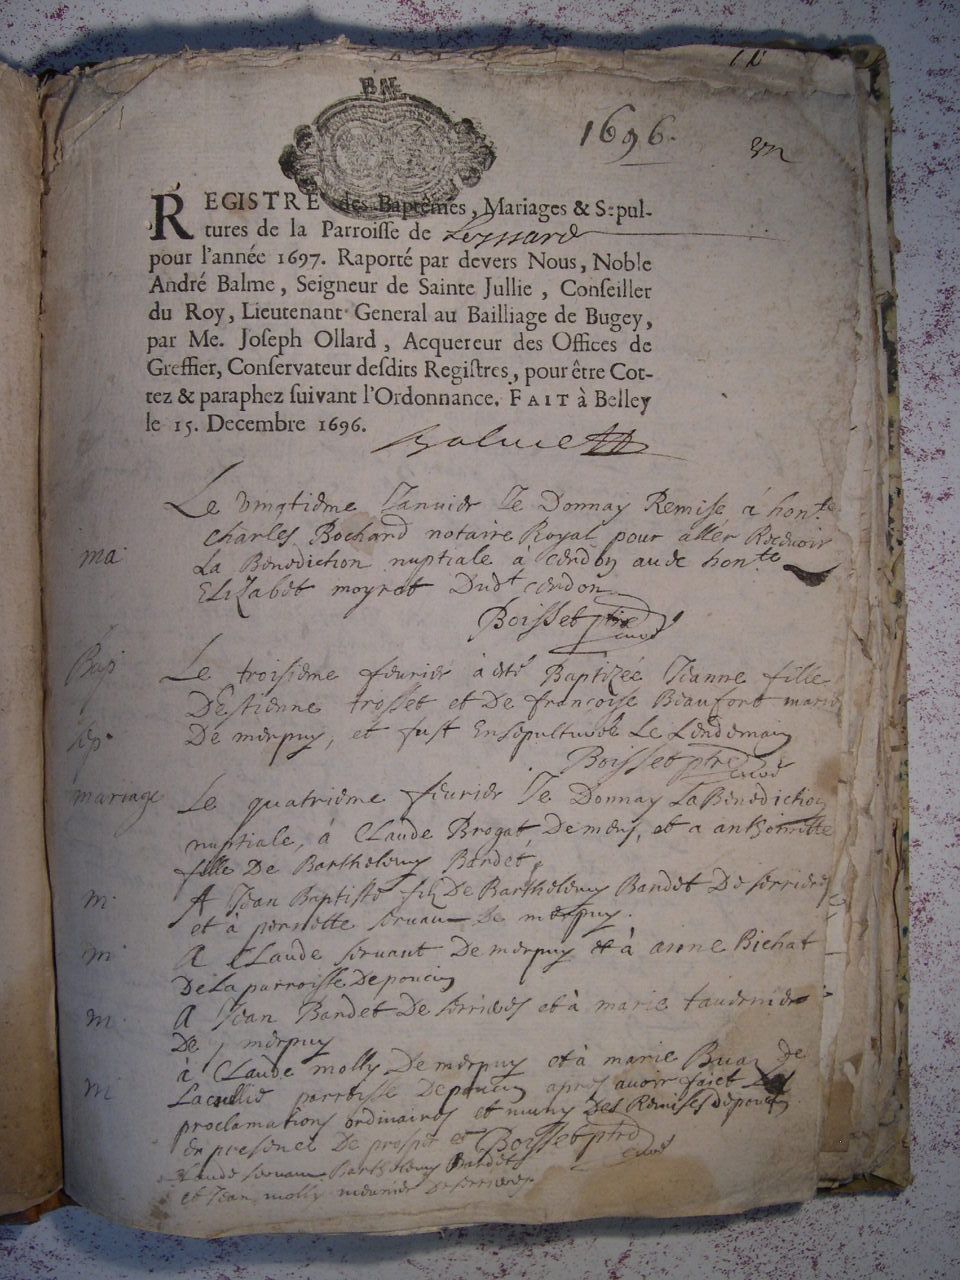 BN
1696.
REGISTRE des Baptêmes, Mariages & Sepul-
tures de la Parroisse de Leyssard
pour l'année 1697. Raporté par devers Nous, Noble
André Balme, Seigneur de Sainte Jullie, Conseiller
du Roy, Lieutenant General au Bailliage de Bugey,
par Me. Joseph Ollard, Acquereur des Offices de
Greffier, Conservateur desdits Registres, pour être Cot-
tez & paraphez suivant l'Ordonnance. FAIT à Belley
le 15. Decembre 1696.
Balme
Le vingtieme Janvier Je Donnay Remise á honte
Charles Bochard notaire Royal pour aller Recevoir
ma
La Benediction nuptiale à cerdon avec honte
Elizabet moyret Dudt cerdon
Boisset ptre curé
Bap
Le troisieme fevrier à esté Baptizée Jeanne fille
DEstienne trosset et De françoise Beaufort marié
sep.
De merpuy, et fust Ensepulturée Le Lendemain
Boisset ptre curé
mariage
Le quatrieme fevrier Je Donnay La Benediction
nuptiale, á Claude Brogat, De et a anthoinette
fille De Barthelemy Bandet,
m.
A Jean Baptiste filz De Barthelemy Bandet De serrieres
et à pernette servan De merpuy.
m.
A Claude servant De merpuy et à anne Bichat
De La parroisse De poncin
m.
A Jean Bandet De serrieres et à marie tavernier
De merpuy
à Claude molly De merpuy et à marie de
m
parroisse De poncin apres avoir faict Les
proclamations ordinaires et muny Des Remises De poncin
en presence De et Boisset ptre curé
Claude servan Barthelemy Bandet
et Jean molly De serrieres